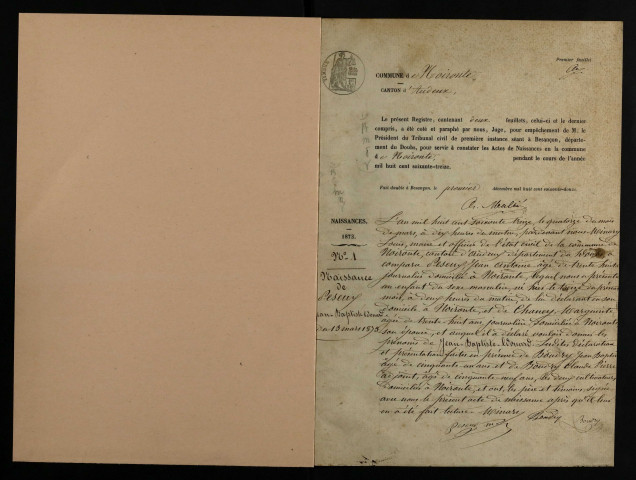 Premier feuillet
COMMUNE d e Noironte,
CANTON d'Audeux.
Le présent Registre, contenant deux feuillets, celui-ci et le dernier
compris, a été coté et paraphé par nous, Juge, pour empêchement de M. le
Président du Tribunal civil de première instance séant à Besançon, départe-
ment du Doubs, pour servir à constater les Actes de Naissances en la commune
d e Noironte, pendant le cours de l'année
mil huit cent soixante-treize.
Fait double à Besançon, le premier décembre mil huit cent soixante-douze.
NAISSANCES.
1873.
N° 1
Naissance
de
Peseux
Jean-Baptiste Edouard
du 13 mars 1873
L'an mil huit cent soixante treize, le quatorze du mois
de mars, à dix heures du matin, pardevant nous
Louis, maire et officier de l'état civil de la commune de
Noironte, canton d'Audeux, département du Doubs, a
comparu Peseux Jean âgé de trente
journalier domicilié à Noironte, lequel nous a présenté
un enfant du sexe masculin, né hier le treize du présent
mois, à deux heures du matin, de lui déclarant en son
domicile à Noironte, et de Marguerite,
âgée de trente huit ans, journalière domiciliée à Noironte
son épouse, et auquel il a déclaré vouloir donner les
prénoms de Jean-Baptiste Edouard. Lesdites déclaration
et présentation faites en présence de Jean Baptiste
âgé de cinquante un ans et de Claude Pierre
adjoint, âgé de cinquante neuf ans, les deux cultivateurs
domiciliés à Noironte, et ont, les père et témoins, signé
avec nous le présent acte de naissance après qu'il leur
en a été fait lecture.